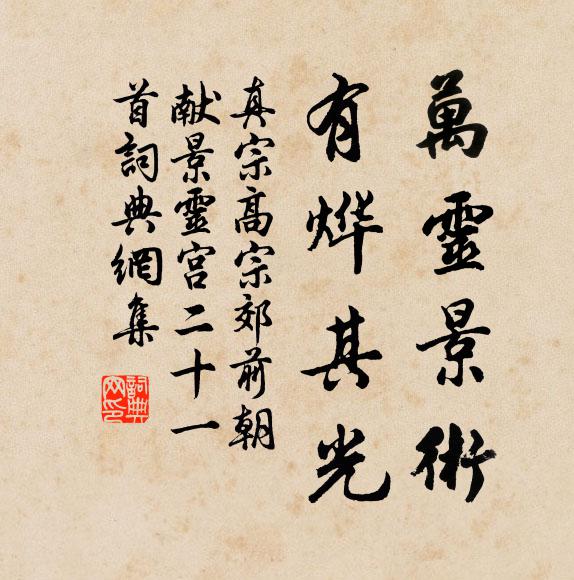 萬靈景術
有烨其光
真宗高宗郊前朝
献景靈宫二十一
首詞典網集
詞典
网印